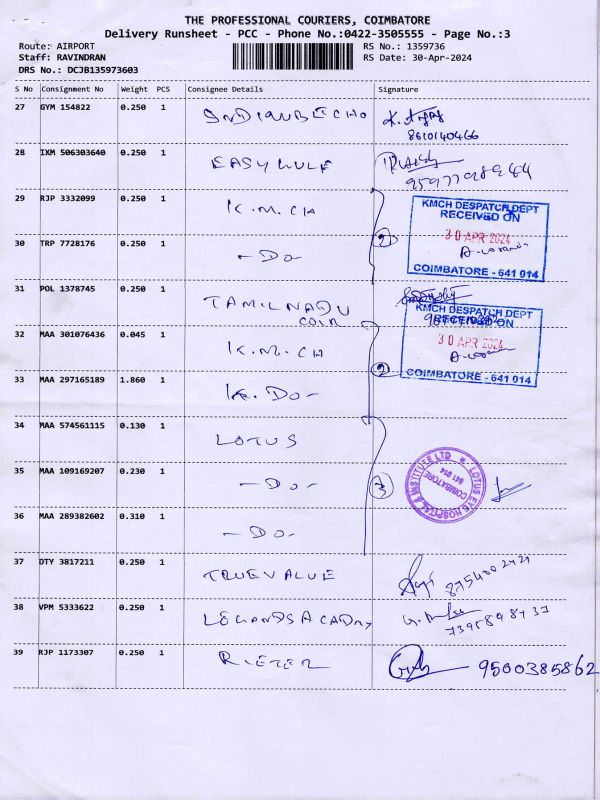 THE PROFESSIONAL COURIERS, COIMBATORE
Delivery Runsheet - PCC - Phone No.:0422-3505555 - Page No.:3
Route: AIRPORT RS No.: 1359736
Staff: RAVINDRAN RS Date: 30-Apr-2024
DRS No.: DCJB135973603
S No Consignment No Weight PCS Consignee Details Signature
27 GYM 154822 0.250 1
8610140466
28 IXM 506303640 0.250 1
29 RJP 3332099 0.250 1 K.M.CH
KMCH DESPATCH DEPT
RECEIVED ON
30 APR 2024
COIMBATORE - 641 014
30 TRP 7728176 0.250 1 - Do - 2
31 POL 1378745 0.250 1 TAMILNADU
COIR
KMCH DESPATCH DEPT
RECEIVED ON
30 APR 2024
COIMBATORE - 641 014
32 MAA 301076436 0.045 1 K.M.CH
33 MAA 297165189 1.860 1 - Do - 2
34 MAA 574561115 0.130 1 LOTUS
35 MAA 109169207 0.230 1 - Do - 3
LOTUS EYE HOSPITAL & INSTITUTE LTD
COIMBATORE
641 014
36 MAA 289382602 0.310 1 - Do -
37 DTY 3817211 0.250 1 TRUEVALUE
38 VPM 5333622 0.250 1
39 RJP 1173307 0.250 1 RIETER 9500385862